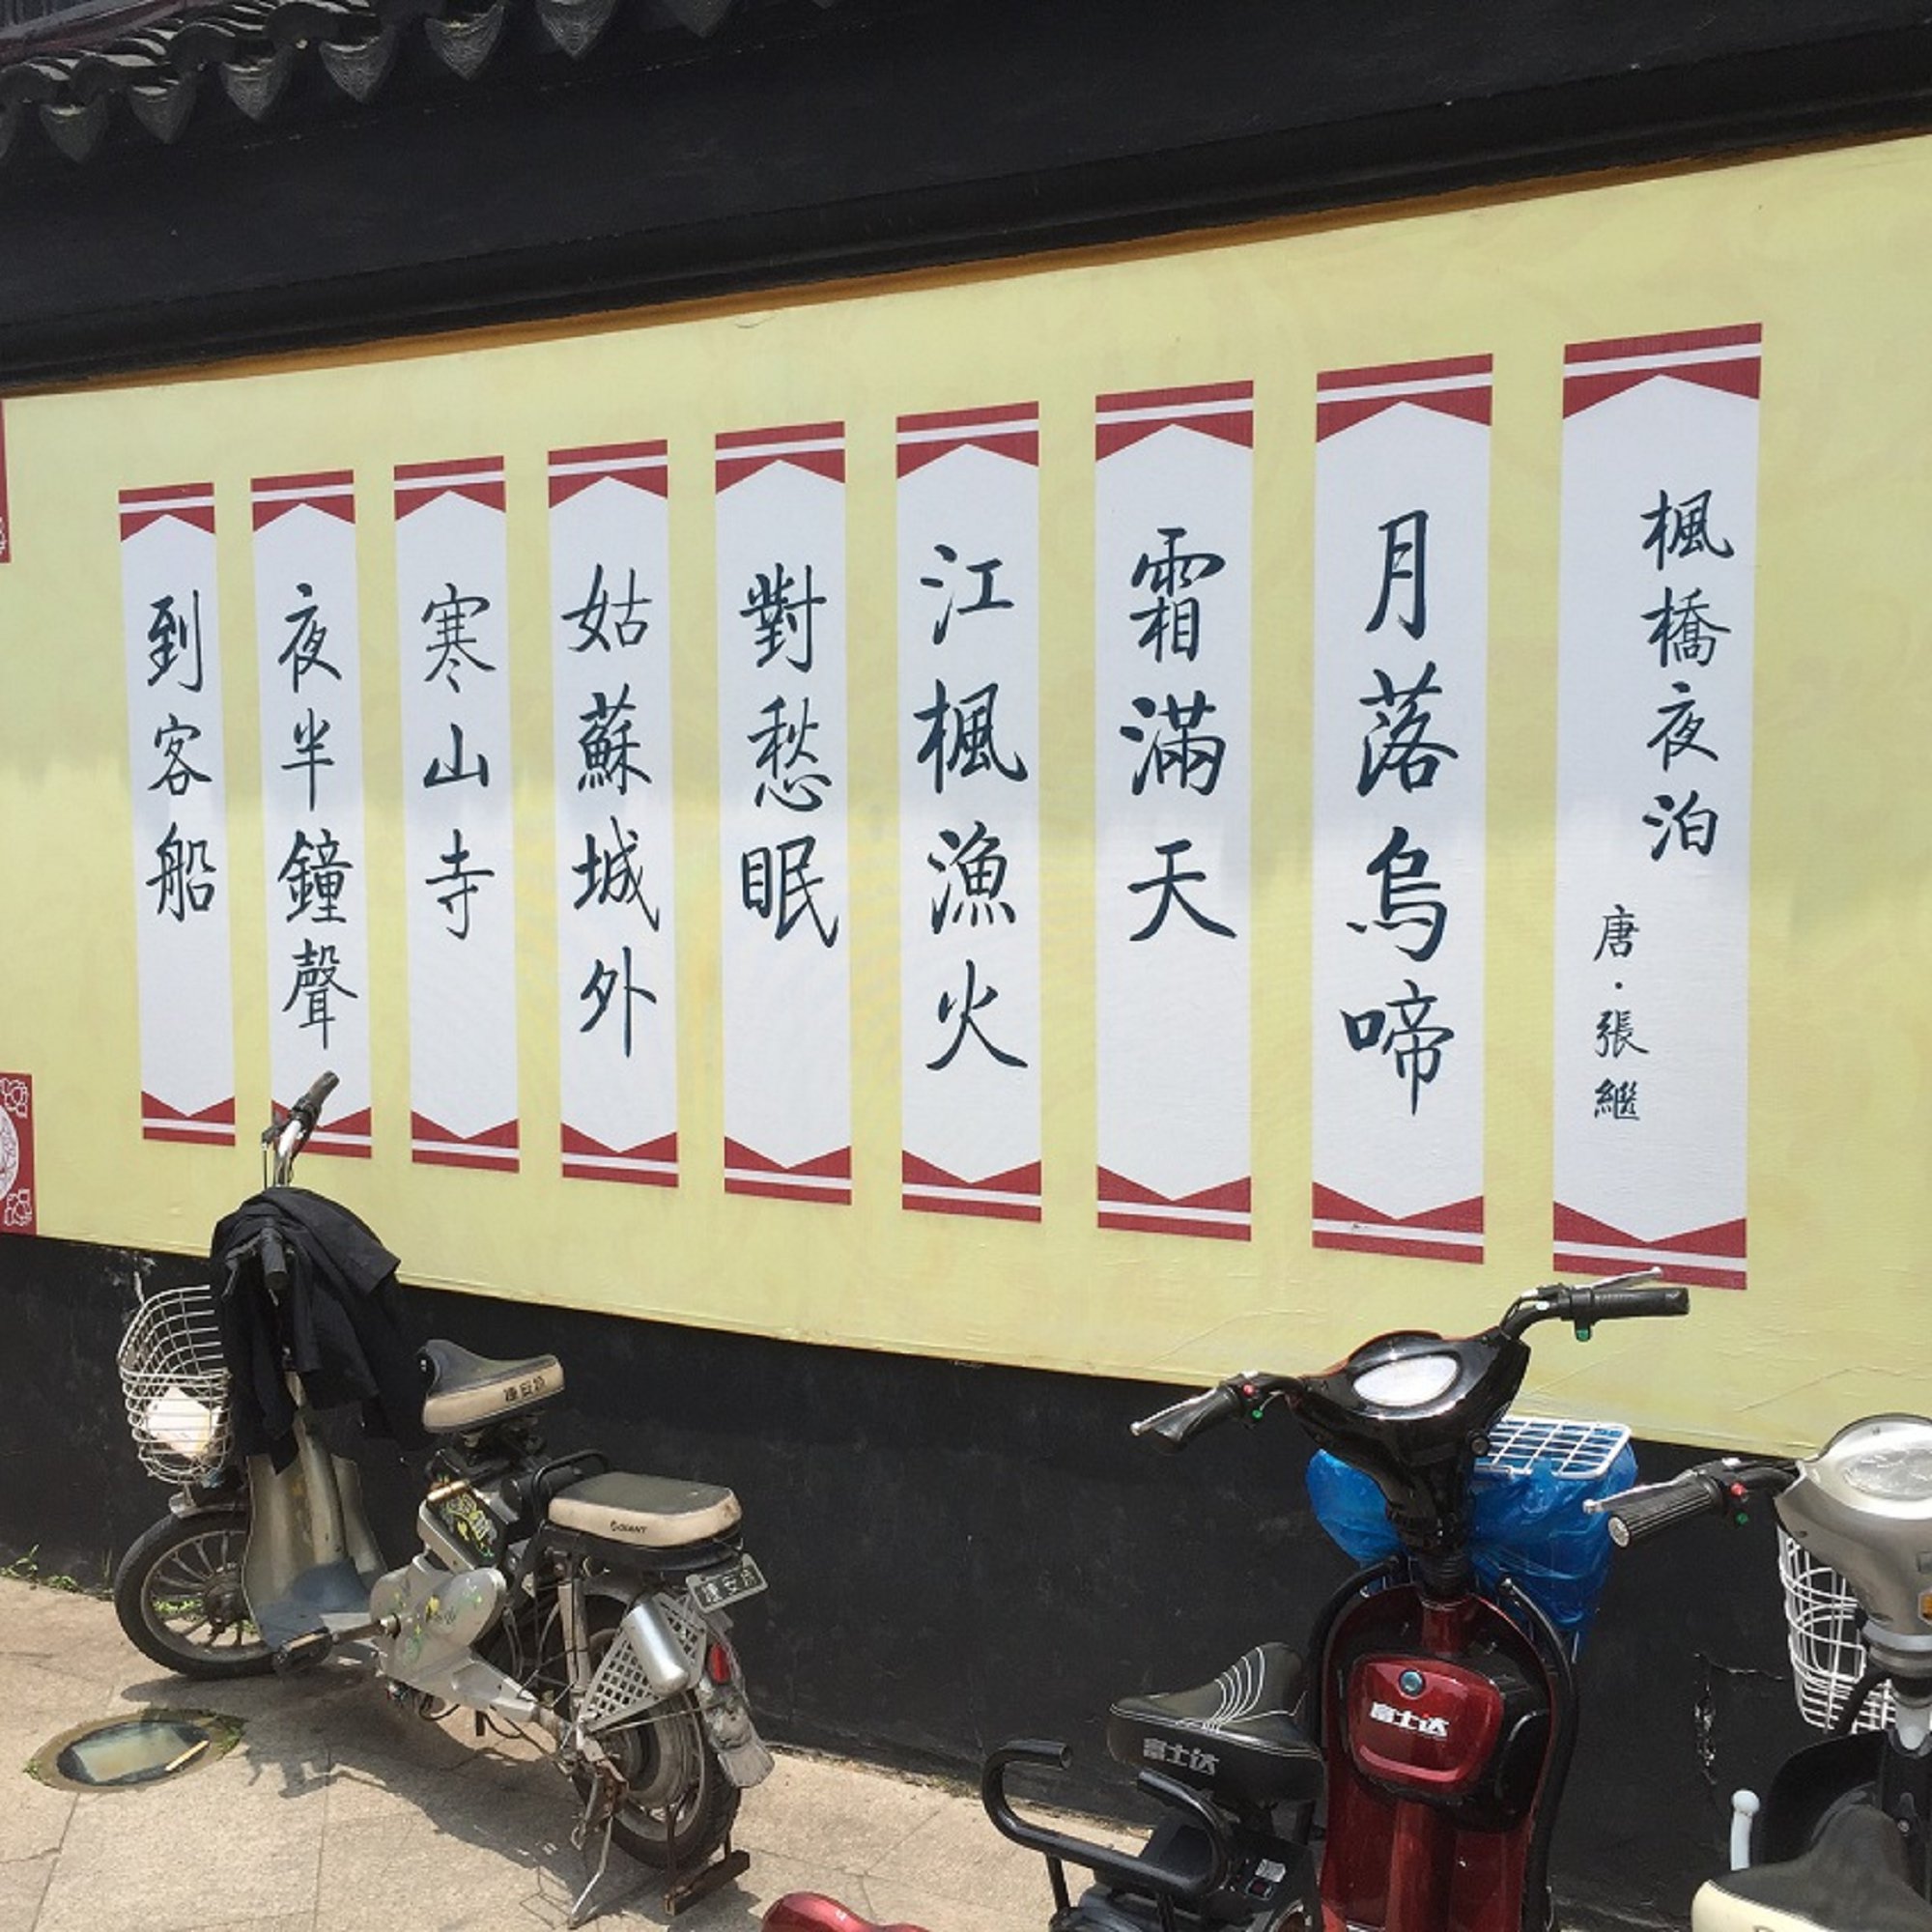 楓橋夜泊
唐·張繼
月落烏啼
霜滿天
江楓漁火
對愁眠
姑蘇城外
寒山寺
夜半鐘聲
到客船
GIANT
富士达
富士达